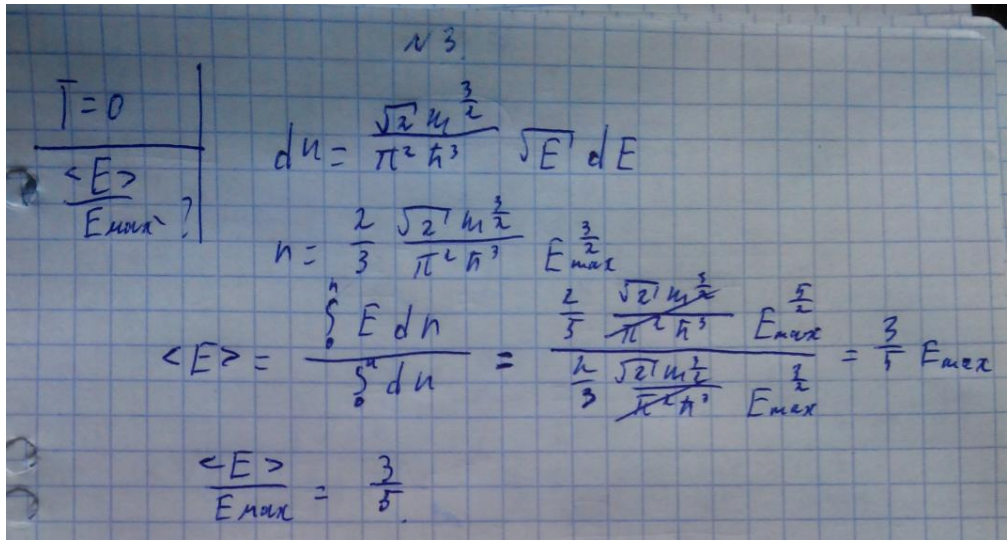 N 3.
T = 0
<E> / Eмах - ?
dn = √2 m^(3/2) / π² ħ³ √E dE
n = 2/3 √2 m^(3/2) / π² ħ³ E_max^(3/2)
<E> = ∫₀ⁿ E dn / ∫₀ⁿ dn = 2/5 √2 m^(3/2) / π² ħ³ E_max^(5/2) / 2/3 √2 m^(3/2) / π² ħ³ E_max^(3/2) = 3/5 E_max
<E> / E_max = 3/5.